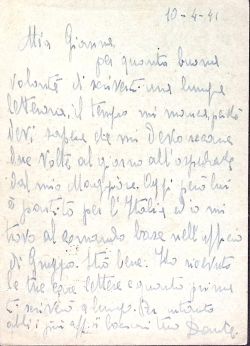 10-4-41
Mia Gianna
per quanta buona
volontà di scriverti una lunga
letterona, il tempo mi manca, poichè
devi sapere che mi devo recare
due volte al giorno all'ospedale
dal mio Maggiore. Oggi però lui
è partito per l'Italia ed io mi
trovo al comando base nell'ufficio
di Gruppo. Sto bene. Ho ricevuto
le tue care lettere e quanto prima
ti scriverò a lungo. Per intanto
abbiti i più aff.ti bacioni tuo Dante